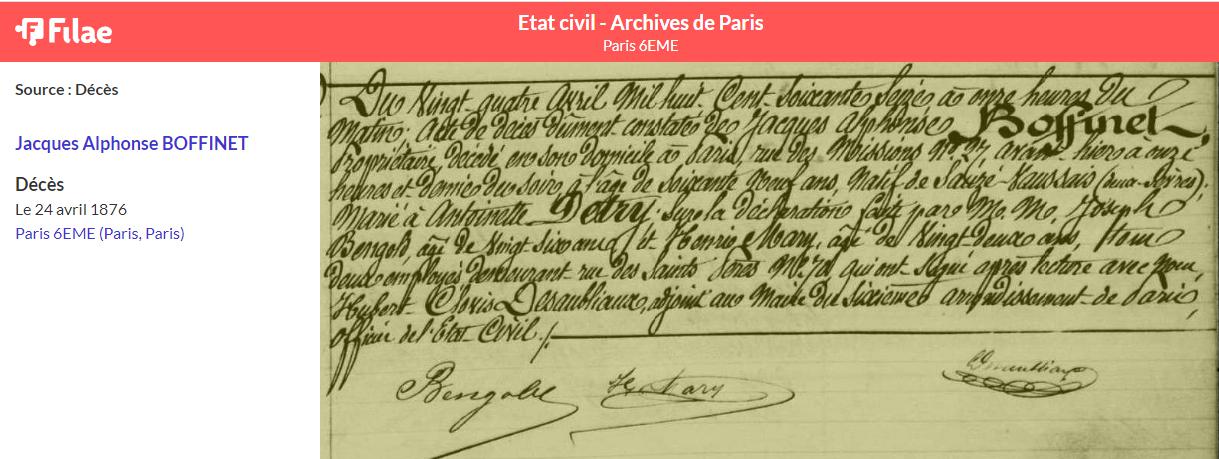 Filae
Etat civil - Archives de Paris
Paris 6EME
Source : Décès
Jacques Alphonse BOFFINET
Décès
Le 24 avril 1876
Paris 6EME (Paris, Paris)
Du Vingt-quatre Avril Mil huit Cent Soixante Seize à onze heures du
Matin; Acte de décès dûment constaté de Jacques Alphonse Boffinet,
Propriétaire, décédé en son domicile à Paris, rue des Missions N° 27, avant-hier à onze
heures et demie du soir à l'âge de Soixante Neuf ans, Natif de Sauzé-Vaussais (Deux-Sèvres).
Marié à Antoinette Detry; sur la déclaration faite par M. M. Joseph
Bengold, âgé de Vingt six ans et Henri Mary, âgé de Vingt-deux ans, tous
deux employés demeurant rue des Saints Pères N° 70, qui ont signé après lecture avec Nous,
Hubert Clovis Desaubliaux, adjoint au Maire du sixième arrondissement de Paris,
Officier de l'Etat Civil ./.
H. Mary